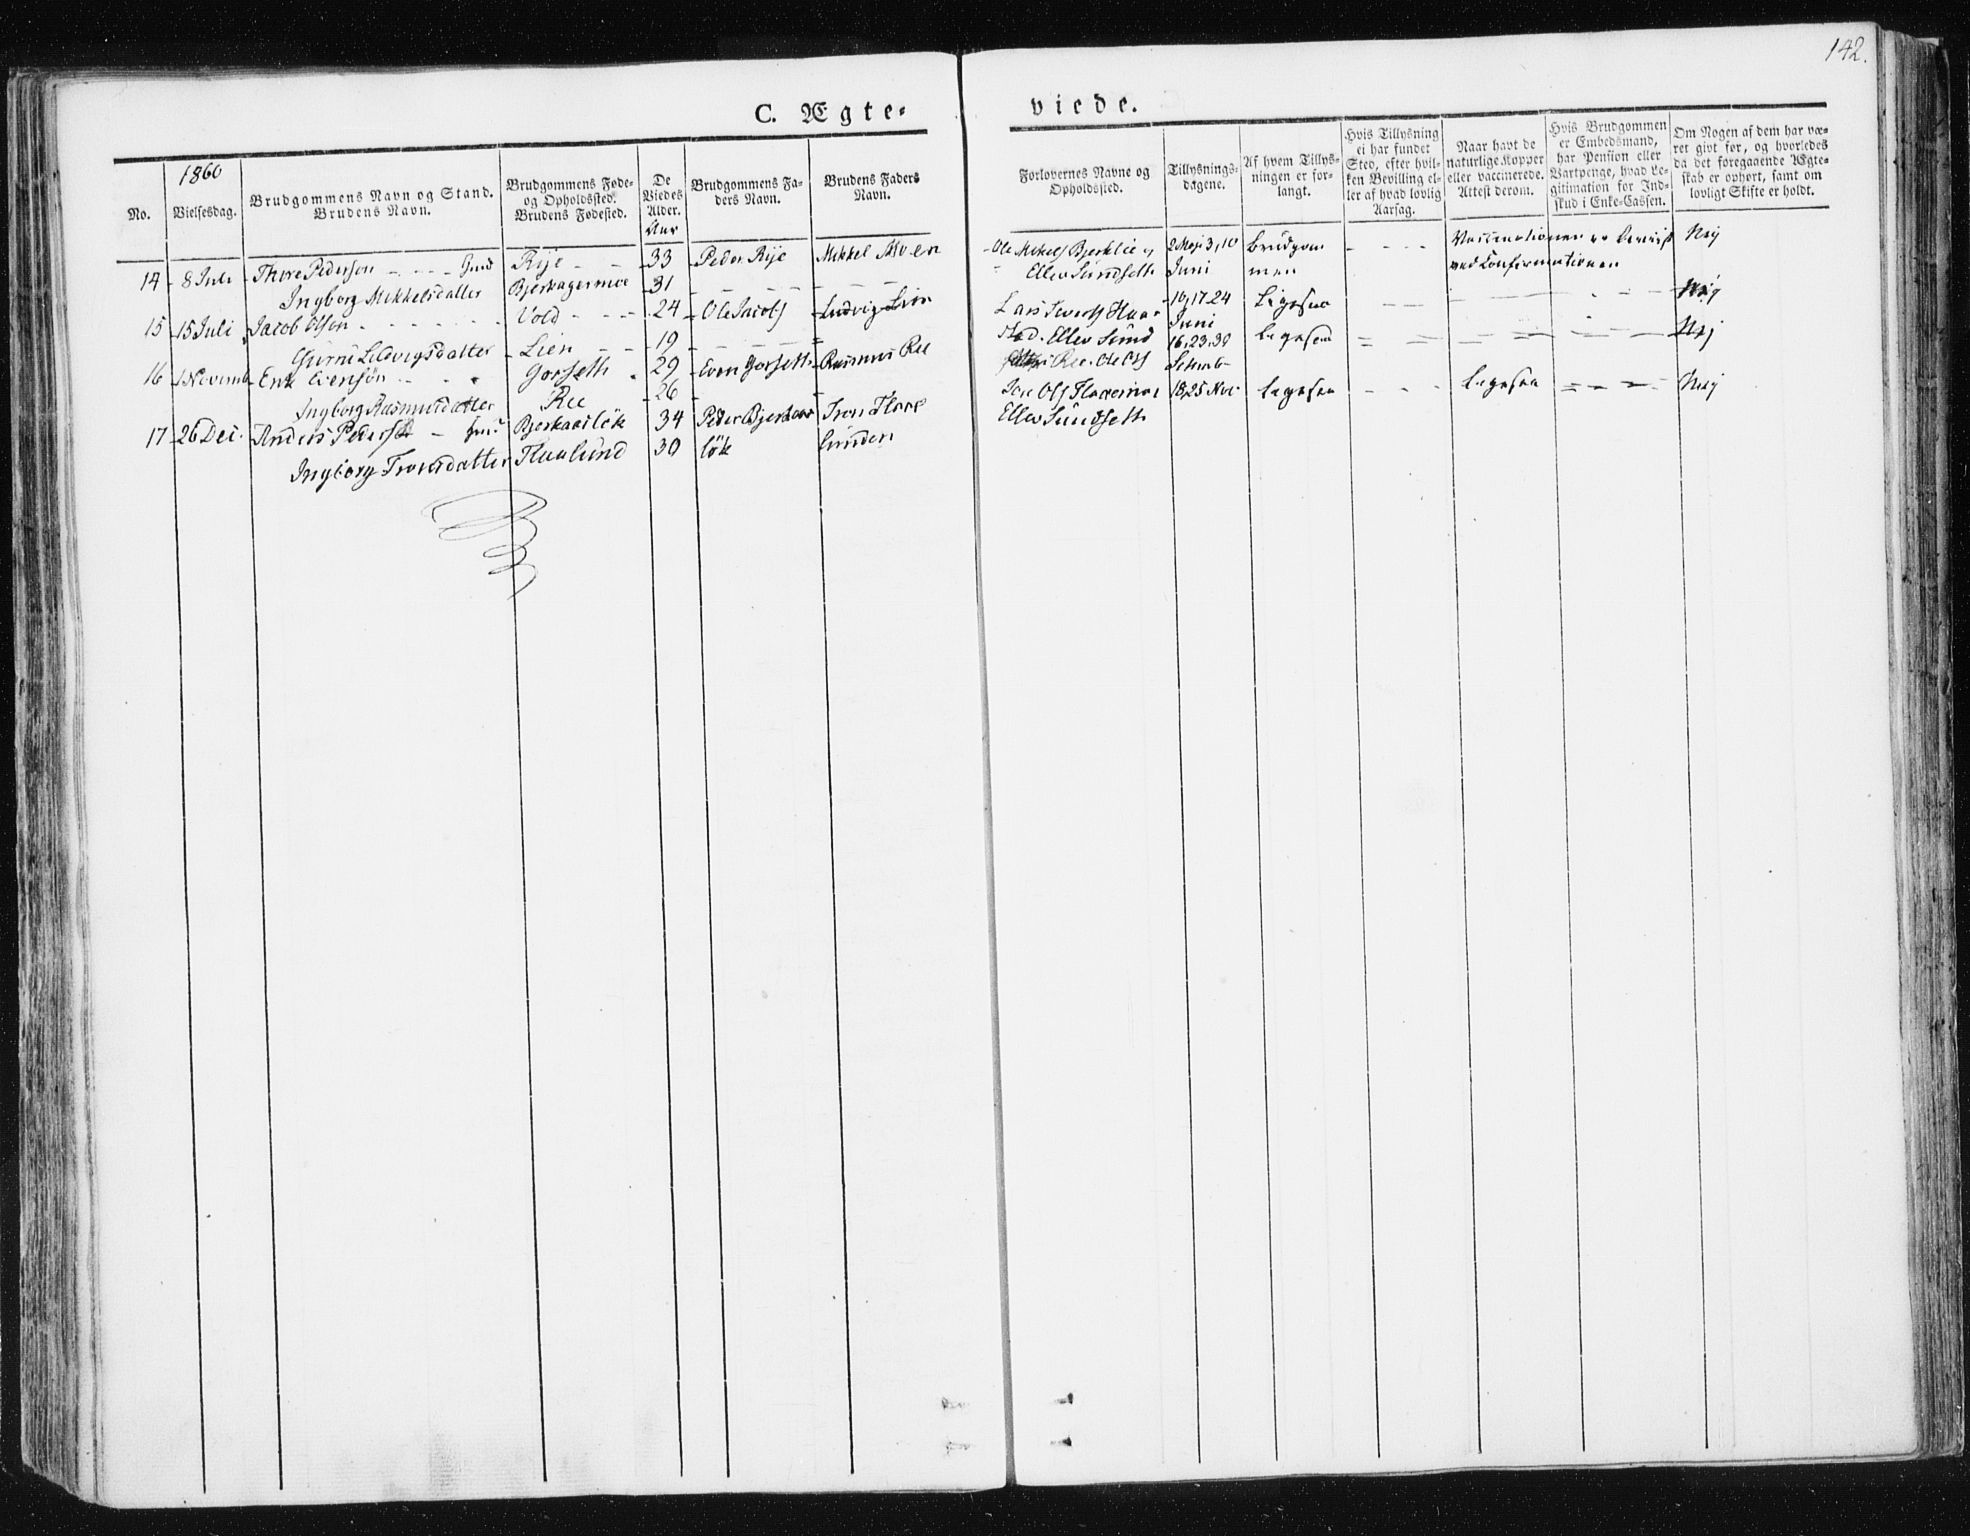 142.
C. Ægte-
viede.
1860
No.
Vielsesdag.
Brudgommens Navn og Stand.
Brudens Navn.
Brudgommens Føde-
og Opholdssted.
Brudens Fødested.
De
Viedes
Alder.
Aar
Brudgommens Fa-
ders Navn.
Brudens Faders
Navn.
Forlovernes Navne og
Opholdssted.
Tillysnings-
dagene.
Af hvem Tillys-
ningen er for-
langt.
Hvis Tillysning
ei har fundet
Sted, efter hvil-
ken Bevilling el-
ler af hvad lovlig
Aarsag.
Naar havt de
naturlige Kopper
eller vaccinerede.
Attest derom.
Hvis Brudgommen
er Embedsmand,
har Pension eller
Vartpenge, hvad Le-
gitimation for Ind-
skud i Enke-Cassen.
Om Nogen af dem har væ-
ret givt før, og hvorledes
da det foregaaende Ægte-
skab er ophørt, samt om
lovligt Skifte er holdt.
14 - 8 Juli - Thore Pederson - - - - Rije - - 33 - Peder Rije - Mikkel Moen - Ole Mikkels Bjerklie og 2 Maji 3, 10 Brudgom - - - - Vaccinationen er beviist Nej
Ingeborg Mikkelsdatter Bjerkagermoe - 31 - - - - Ellev Sundseth Juni men ved Confirmationen
15 - 15 Juli Jacob Olson - - - - Vold - - - 24 - Ole Jacobs - Ludvig Lien Lars Ivers 10, 17. 24 Ligesaa - - - Nej
Ludvigsdatter - Lien - - 19 - Ellev Sund Juni
16 - 1 Novemb - Erik Evensøn - - - Gorseth - 29 - Even Gorseth - Rasmus Ree Ree. Ole Ols 16, 23. 30 Ligesaa - - Nej
Ingeborg Rasmusdatter Ree - 26 Septemb
17 - 26 Dec. - Anders Peders - Bjerkaasløk 34 Peder Bjerkaas Tron Hove Jon Ols 18, 25 Nov Ligesaa - - - Ligesaa - - - Nej
Ingeborg Tronsdatter Haalund 30 løk lunden Ellev Sundseth